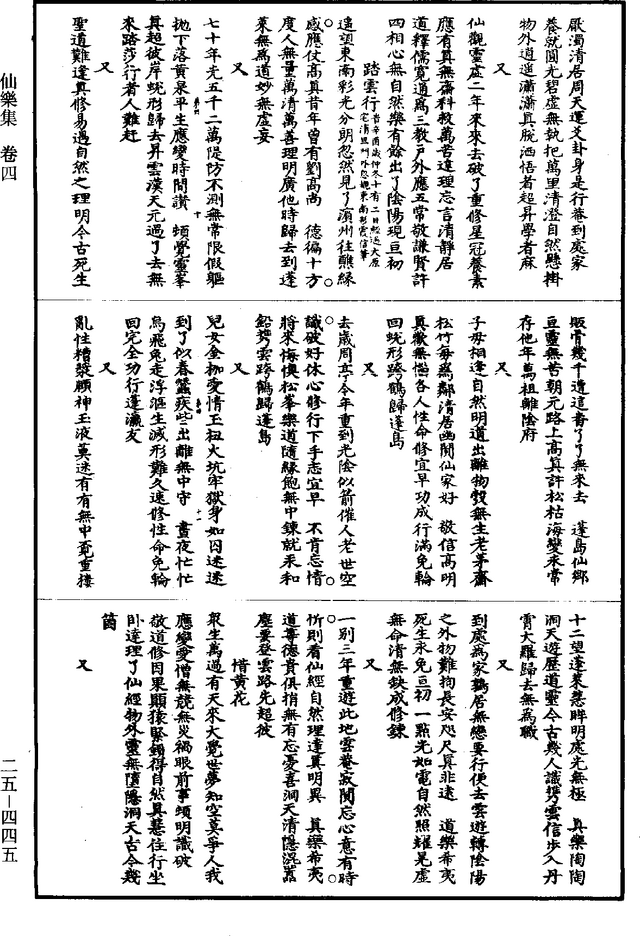 仙樂集 卷四
二五—四四五
厭濁清居周天運爻卦身是行菴到處家
養就圓光碧虛無執把萬里清澄自然懸掛
物外逍遥瀟瀟真脫洒悟者超昇學者麻
又
仙觀靈虛二年來來去破了重修星冠養素
應有真無齋科教萬苦違理忘言清靜居
道釋儒寬通爲三教戶外應五常敬謙賢許
四相心無自然樂有餘出了陰陽現亘初
踏雲行
遥望東南彩光分明忽然見了濱州往醮緣
感應仗高真昔年曾有劉高尚 德徧十方
度人無量萬清萬善理明廣他時歸去到蓬
萊無爲道妙無虛妄
又
七十年光五千二萬隄防不測無常限假軀
抛下落黄泉平生應變時間讚 頓覺靈峯
真超彼岸蛻形歸去昇雲漢天元過了去無
來踏莎行者人難赶
又
聖道難逢真修易遇自然之理明今古死生
販骨幾千遭這番了了無來去 蓬島仙鄉
亘靈無苦朝元路上高真許松枯海變永常
存他年萬祖離陰府
又
子母相逢自然明道出離物彀無生老茅齋
松竹每爲鄰清居幽闃仙家好 敬信高明
真歡無惱各人性命修宜早功成行滿免輪
回蛻形跨鶴歸蓬島
又
去歲周亭今年重到光陰似箭催人老世空
識破好休心修行下手志宜早 不肯忘情
將來悔懊松峯樂道隨緣飽無中鍊就汞和
鉛攜雲跨鶴歸蓬島
又
兒女金枷愛情玉杻火坑牢獄身如囚迷迷
到了似春蠶疾些出離無中守 晝夜忙忙
烏飛兔走浮漚生滅形難久速修性命免輪
回完全功行蓬瀛友
又
亂性糟漿頤神玉液莫迷有有無中覓重摟
十二望蓬萊慧眸明處光無極 真樂陶陶
洞天遊歷道靈今古幾人識攜雲信步入丹
霄大羅歸去無爲職
又
到處爲家鶉居無戀要行便去雲遊轉陰陽
之外物難拘長安咫尺算非遠 道樂希夷
死生永免亘初一點光如電自然照耀晃虛
無命清無缺成修鍊
又
一別三年重遊此地雲菴寂闃忘心意有時
忻則看仙經自然理達真明異 真樂希夷
道尊德貴俱捎無有忘憂喜洞天清隱混囂
塵要登雲路先超彼
惜黄花
衆生萬過有天來大覺世夢知空莫爭人我
應變愛憎無競無災禍眼前事頓明識破
敬道修因果顯猿緊鎖得自然真慧住行坐
卧達理了仙經物外靈無墮隱洞天古今幾
箇
又